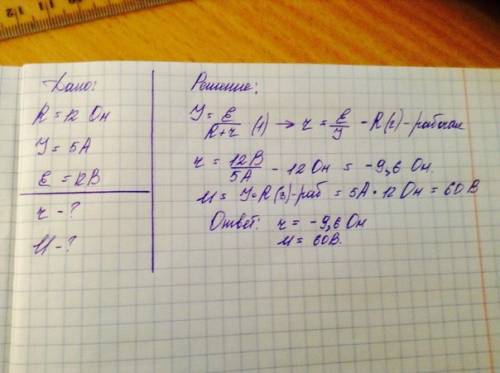 Дано:
R = 12 Ом
I = 5А
ε = 12В
r - ?
U - ?
Решение:
I = ε/(R+r) (1) → r = ε/I - R (2) - рабочая
r = 12В/5А - 12 Ом = -9,6 Ом.
U = I·R (3) - раб = 5А · 12 Ом = 60В
Ответ: r = -9,6 Ом
U = 60В.